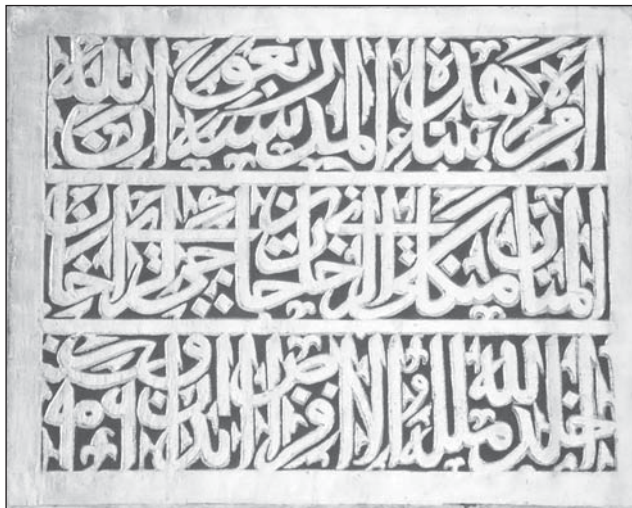 امر ببناء هذه المدرسة بعون الله
المنان منكلي كراي خان بن حاجي كراي خان
خلد الله ملكه الى انقراض الدوران